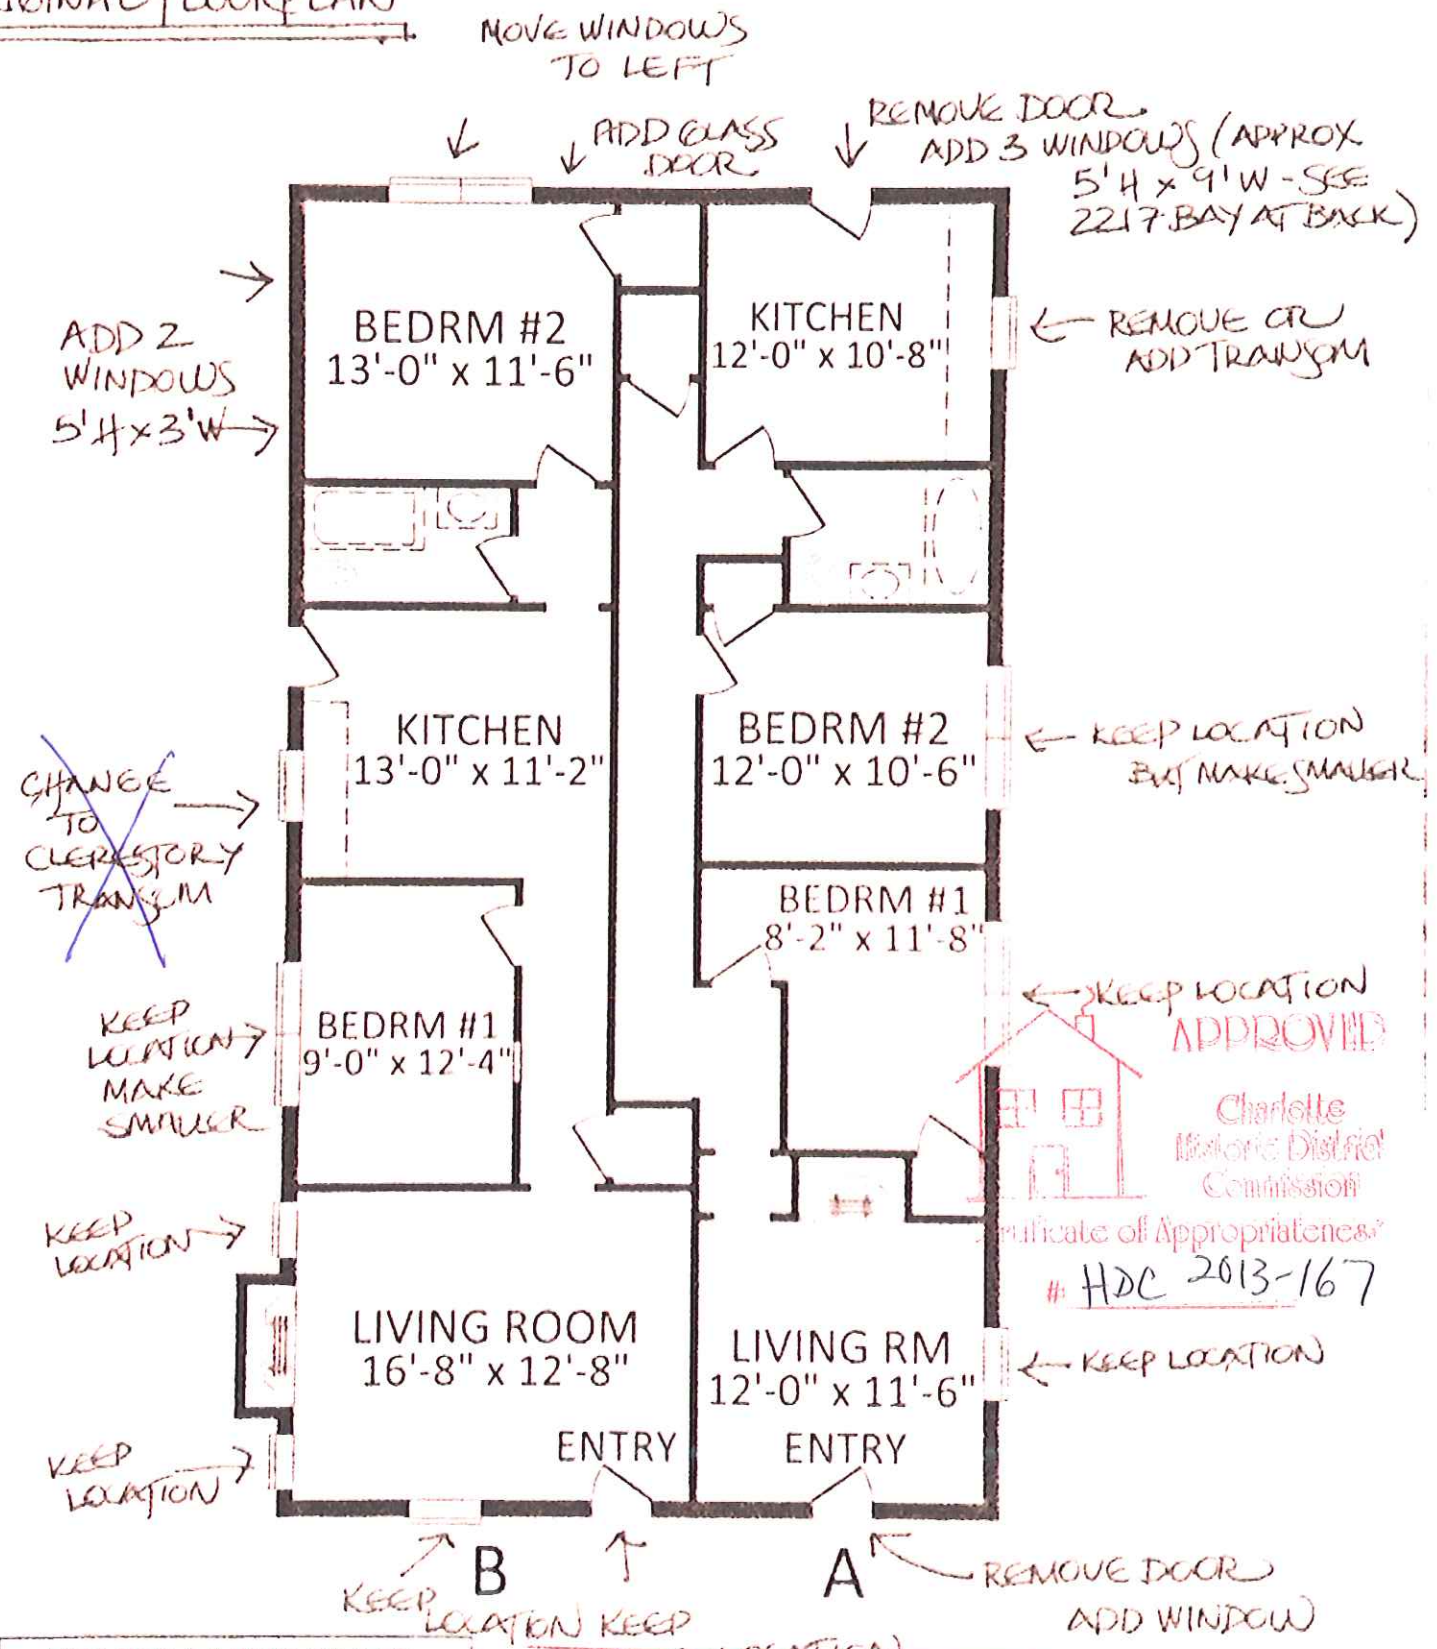 FLOORPLAN
MOVE WINDOWS
TO LEFT
ADD GLASS
DOOR
REMOVE DOOR
ADD 3 WINDOWS (APPROX
5'H x 9'W - SEE
2217 BAY AT BACK)
ADD 2
WINDOWS
5'H x 3'W
BEDRM #2
13'-0" x 11'-6"
KITCHEN
12'-0" x 10'-8"
REMOVE OR
ADD TRANSOM
KITCHEN
13'-0" x 11'-2"
BEDRM #2
12'-0" x 10'-6"
KEEP LOCATION
BUT MAKE SMALLER
CHANGE
TO
CLERESTORY
TRANSOM
BEDRM #1
8'-2" x 11'-8"
KEEP LOCATION
KEEP
LOCATION
MAKE
SMALLER
BEDRM #1
9'-0" x 12'-4"
APPROVED
Charlotte
Historic District
Commission
Certificate of Appropriateness
# HDC 2013-167
KEEP
LOCATION
LIVING ROOM
16'-8" x 12'-8"
LIVING RM
12'-0" x 11'-6"
KEEP LOCATION
KEEP
LOCATION
ENTRY
ENTRY
B
A
KEEP
LOCATION
KEEP
LOCATION
REMOVE DOOR
ADD WINDOW